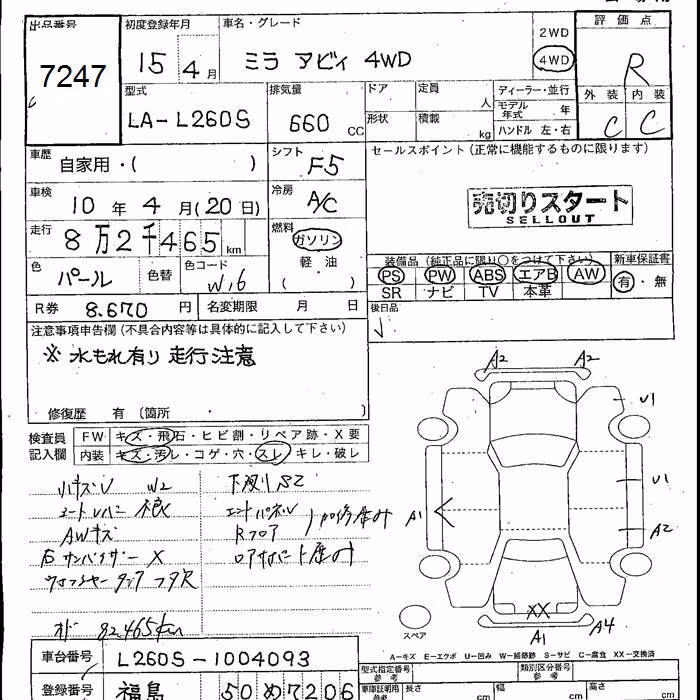 出品番号 初度登録年月 車名・グレード 評価点
7247
15 4月 ミラ アビィ 4WD
2WD
4WD
R
型式 排気量 ドア 定員 人 ディーラー・並行 外装 内装
LA-L260S 660 CC
形状 積載 kg モデル年式 年
ハンドル 左・右
C C
車歴 自家用・( )
シフト F5
セールスポイント(正常に機能するものに限ります)
車検 10年4月(20日)
冷房 A/C
売切りスタート
SELLOUT
走行 8万2千465km
燃料 ガソリン
軽油
( )
色 パール 色替 色コード W16
装備品(純正品に限り○をつけて下さい) 新車保証書
PS PW ABS エアB AW 有・無
SR ナビ TV 本革
R券 8,670円 名変期限 月 日
後日品
注意事項申告欄(不具合内容等は具体的に記入して下さい)
※ 水もれ有り 走行注意
修復歴 有〔箇所
検査員記入欄
FW キズ・飛石・ヒビ割・リペア跡・X要
内装 キズ・汚レ・コゲ・穴・スレ・キレ・破レ
W2 下廻りS2
AWキズ Rフロア
右サンバイザー X
ウォッシャータンクフタ欠
82,465km
A2 A2
U1
U1
A1
A2
XX
A1 A4
スペア
A-キズ E-エクボ U-凹み W-補修跡 S-サビ C-腐食 XX-交換済
車台番号 L260S-1004093
型式指定番号 参考 類別区分番号 参考
登録番号 福島 50 め 7206
車庫証明用 参考 長さ cm 幅 cm 高さ cm